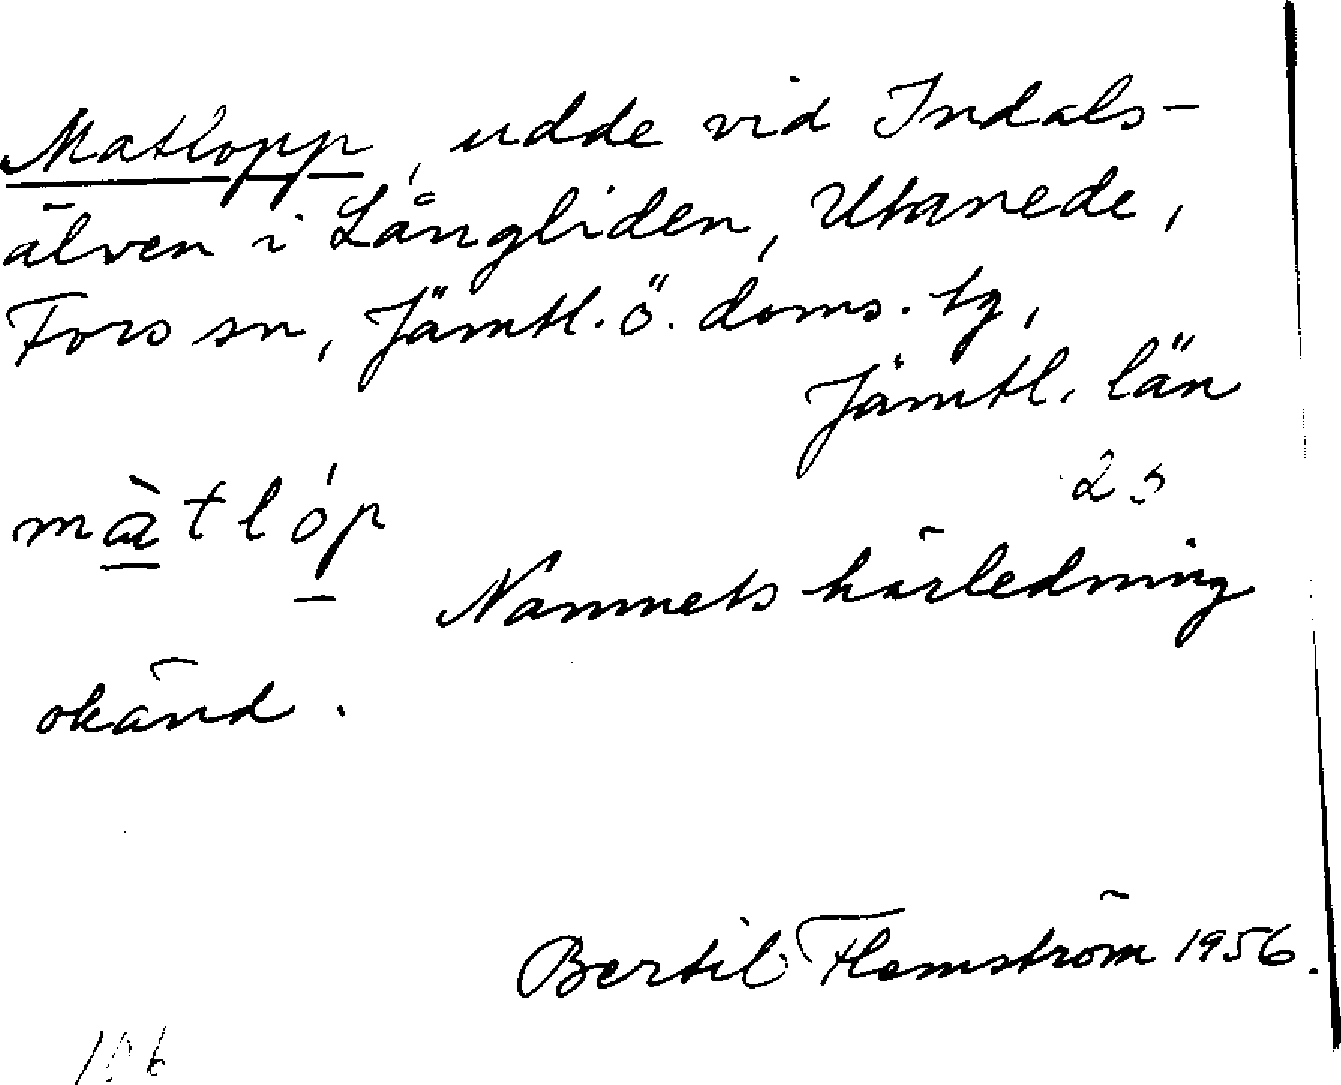 Matlopp, udde vid Indals-
älven i Långliden, Utanede,
Fors sn, Jämtl. ö. doms. tg,
Jämtl. län
màtlóp
Namnets härledning
okänd.
Bertil Flemström 1956.